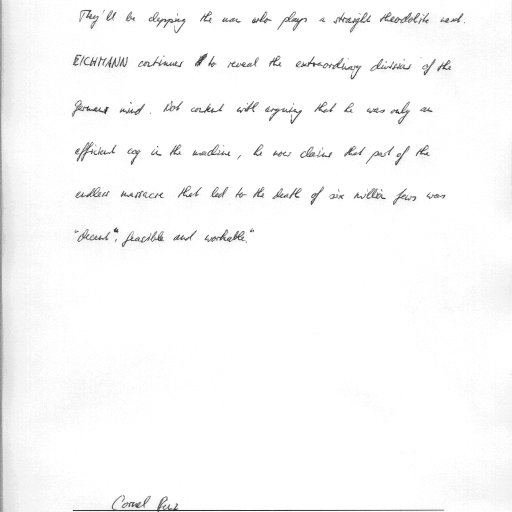 They'll be clapping the man who plays a straight theodolite next.
EICHMANN continues to reveal the extraordinary division of the
German mind. Not content with arguing that he was only an
efficient cog in the machine, he now claims that part of the
endless massacre that led to the death of six million Jews was
"decent", feasible and workable."
Cornel